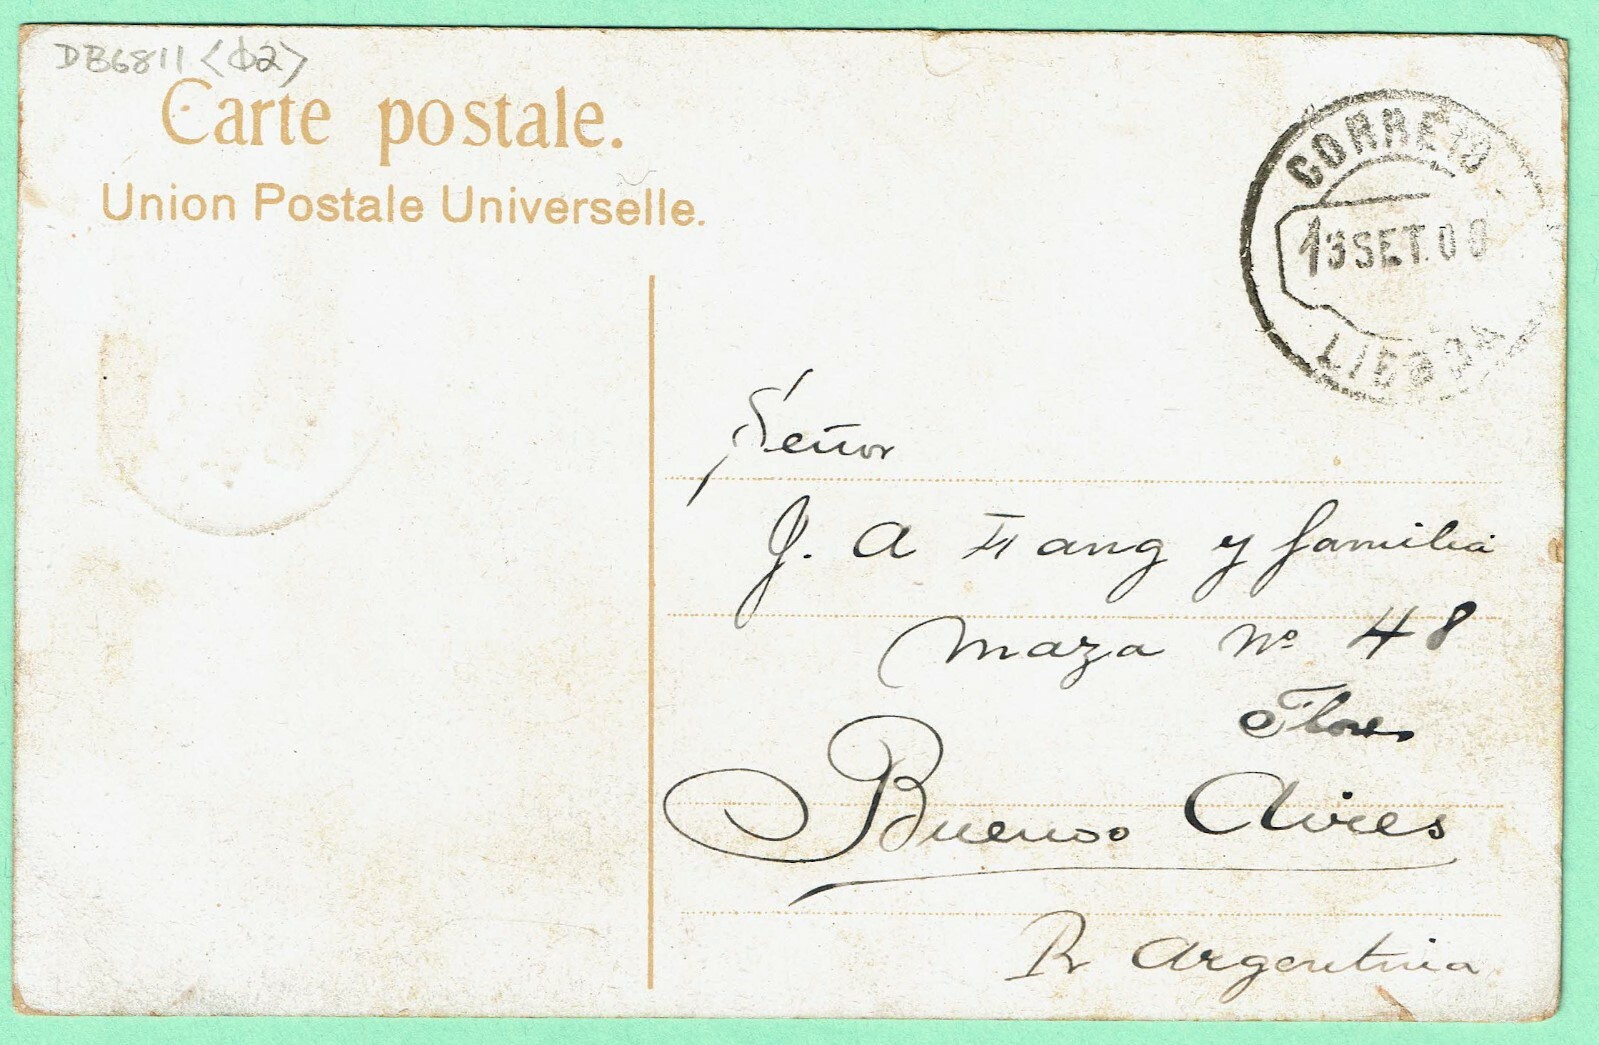 DB6811 <Φ2>
Carte postale.
Union Postale Universelle.
CORREIO
13 SET. 09
LISBOA
Señor
J. A Frang y familia
Maza Nº 48
Flores
Buenos Aires
R Argentina